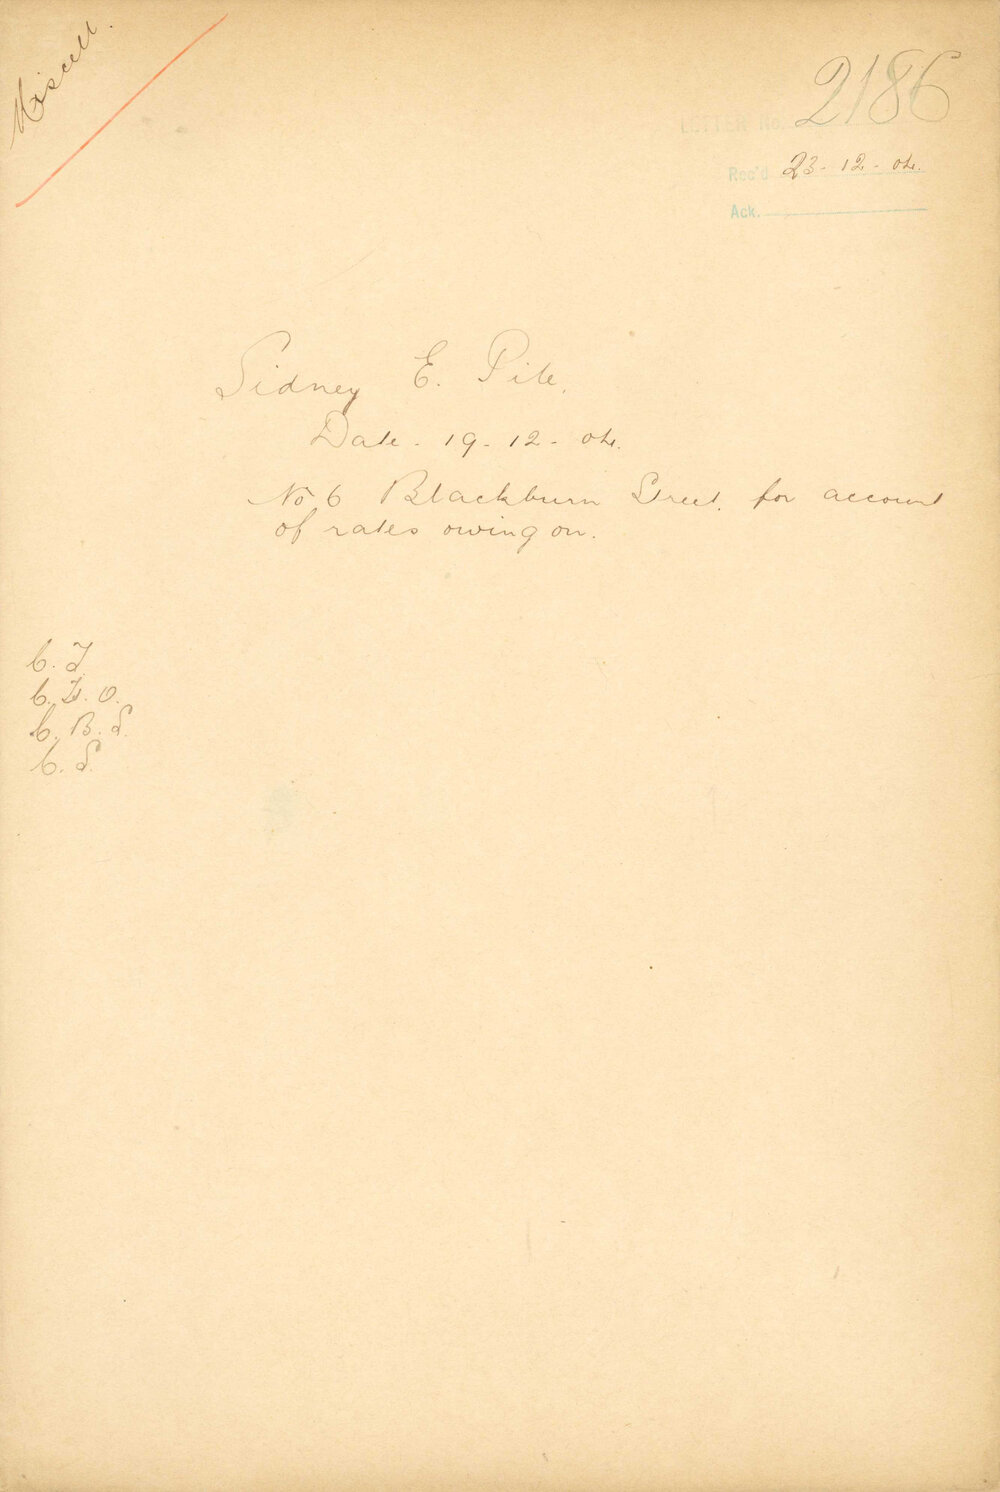 Miscell.
LETTER No. 2186
Rec'd 23-12-04.
Ack.
Sidney E. Pile.
Date - 19-12-04.
No 6 Blackburn Street, for account
of rates owing on.
C. T.
C. B. S.
C. S.